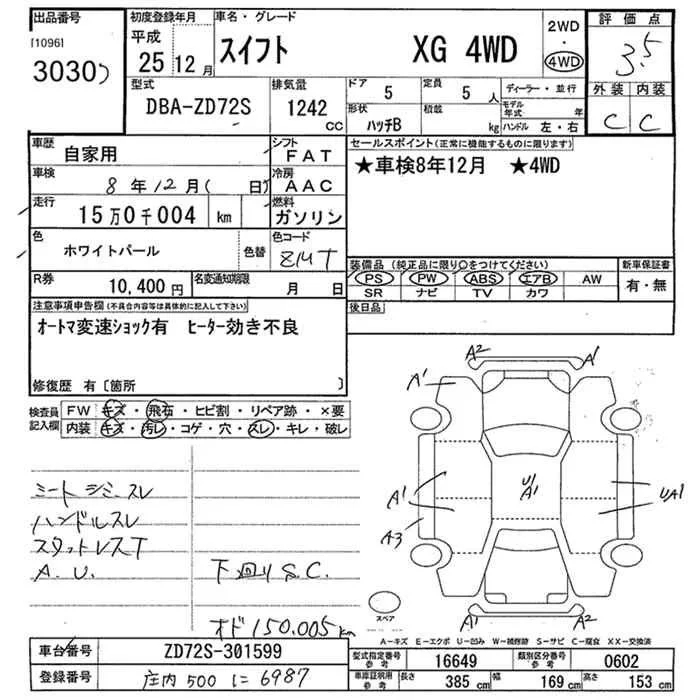 出品番号
[1096]
3030
初度登録年月
平成
25 12 月
車名・グレード
スイフト XG 4WD
2WD
・
4WD
評価点
3.5
外装 内装
C C
型式
DBA-ZD72S
排気量
1242
CC
ドア
5
定員
5 人
ディーラー・並行
形状
ハッチB
積載
kg
モデル年式 年
ハンドル 左・右
車歴
自家用
シフト
FAT
車検
8 年 12 月 ( 日)
冷房
AAC
走行
15万0千004 km
燃料
ガソリン
色
ホワイトパール
色替
色コード
ZMT
R券
10,400 円
名変通知期限
月 日
セールスポイント(正常に機能するものに限ります)
★車検8年12月 ★4WD
装備品(純正品に限り○をつけてください)
PS PW ABS エアB AW
SR ナビ TV カワ
新車保証書
有・無
後日品
注意事項申告欄(不具合内容等は具体的に記入して下さい)
オートマ変速ショック有 ヒーター効き不良
修復歴 有〔箇所 〕
検査員記入欄
FW キズ・飛石・ヒビ割・リペア跡・×要
内装 キズ・汚レ・コゲ・穴・スレ・キレ・破レ
シートシミ、スレ
ハンドルスレ
スタットレスT
A.U.
下回りS.C.
オド150.005km
A2
A1
A1
A1
A3
U/A1
UA1
A1
A2
スペア
A−キズ E−エクボ U−凹み W−補修跡 S−サビ C−腐食 XX−交換済
車台番号
ZD72S-301599
登録番号
庄内 500 に 6987
型式指定番号
参考
16649
類別区分番号
参考
0602
車庫証明用
参考
長さ
385 cm
幅
169 cm
高さ
153 cm